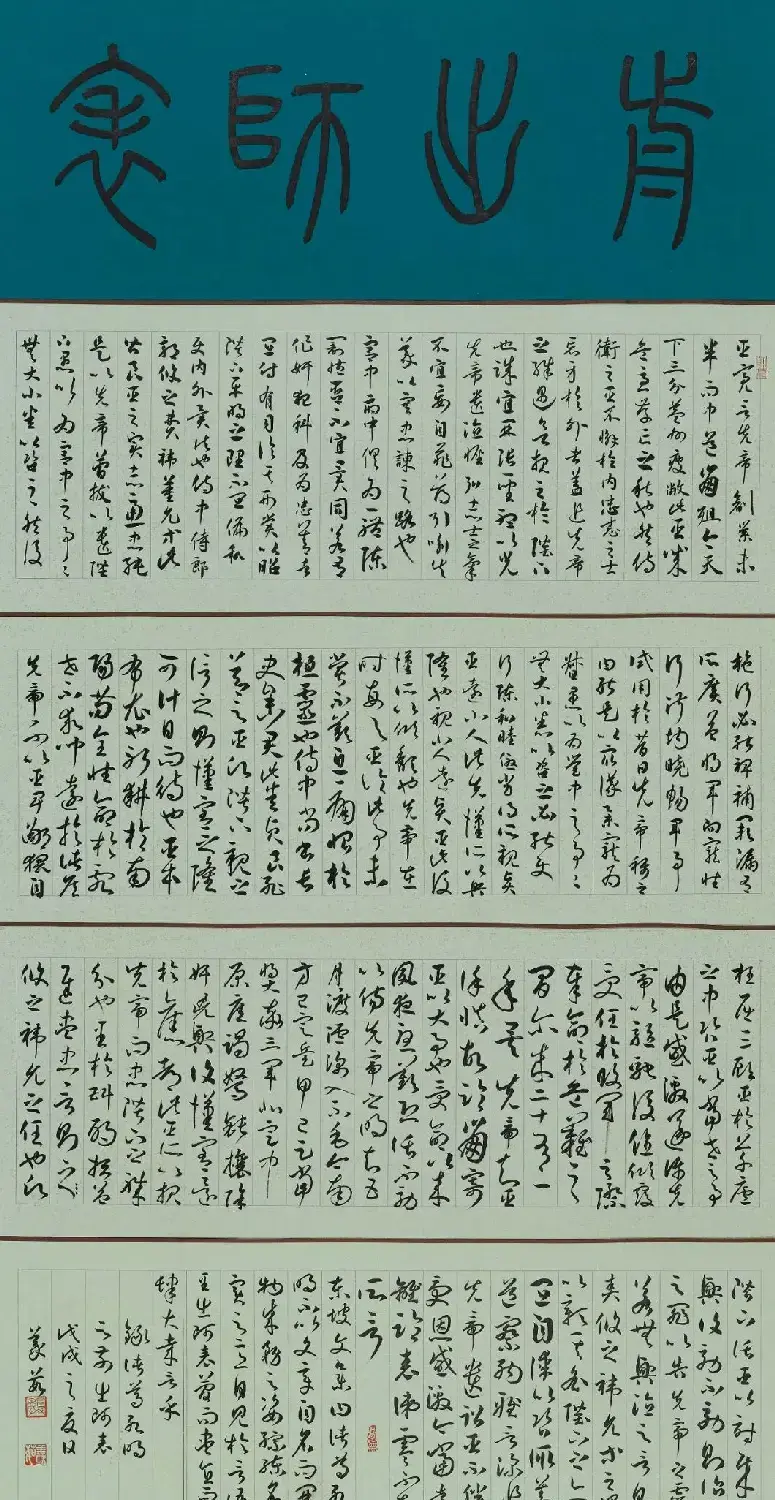 前出師表
臣亮言先帝創業未
半而中道崩殂今天
下三分益州疲敝此誠
危急存亡之秋也然侍
衛之臣不懈於內忠志之士
忘身於外者蓋追先帝
之殊遇欲報之於陛下
也誠宜開張聖聽以光
先帝遺德恢弘志士之氣
不宜妄自菲薄引喻失
義以塞忠諫之路也
宮中府中俱為一體陟
罰臧否不宜異同若有
作奸犯科及為忠善者
宜付有司論其刑賞以昭
陛下平明之理不宜偏私
使內外異法也侍中侍郎
郭攸之費禕董允等此
皆良實志慮忠純
是以先帝簡拔以遺陛
下愚以為宮中之事事
無大小悉以咨之然後
施行必能裨補闕漏有
所廣益將軍向寵性
行淑均曉暢軍事
試用於昔日先帝稱之
曰能是以眾議舉寵為
督愚以為營中之事事
無大小悉以咨之必能使
行陣和睦優劣得所親賢
臣遠小人此先漢所以興
隆也親小人遠賢臣此後
漢所以傾頹也先帝在
時每與臣論此事未
嘗不歎息痛恨於
桓靈也侍中尚書長
史參軍此悉貞良死
節之臣願陛下親之
信之則漢室之隆
可計日而待也臣本
布衣躬耕於南
陽苟全性命於亂
世不求聞達於諸侯
先帝不以臣卑鄙猥自
枉屈三顧臣於草廬
之中諮臣以當世之事
由是感激遂許先
帝以驅馳後值傾覆
受任於敗軍之際
奉命於危難之
間爾來二十有一
年矣先帝知臣
謹慎故臨崩寄
臣以大事也受命以來
夙夜憂歎恐託不効
以傷先帝之明故五
月渡瀘深入不毛今南
方已定兵甲已足當
獎率三軍北定中
原庶竭駑鈍攘除
奸凶興復漢室還
於舊都此臣所以報
先帝而忠陛下之職
分也至於斟酌損益
進盡忠言則
攸之禕允之任也願
陛下託臣以討賊
興復効不効則治
之罪以告先帝之靈
若無興德之言
責攸之禕允等之
以彰其咎陛下亦
宜自謀以諮諏善
道察納雅言深
先帝遺詔臣不勝
受恩感激今當遠
離臨表涕零不知
所言
戊戌之夏日